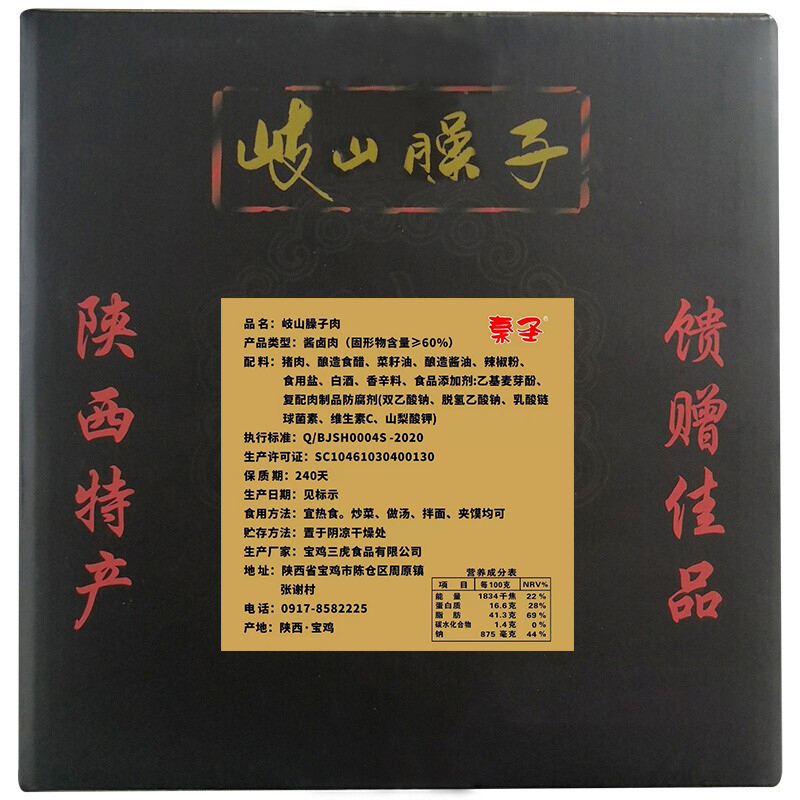 岐山臊子
陕西特产
馈赠佳品
秦子
品名：岐山臊子肉
产品类型：酱卤肉（固形物含量≥60%）
配料：猪肉、酿造食醋、菜籽油、酿造酱油、辣椒粉、
食用盐、白酒、香辛料、食品添加剂:乙基麦芽酚、
复配肉制品防腐剂(双乙酸钠、脱氢乙酸钠、乳酸链
球菌素、维生素C、山梨酸钾)
执行标准：Q/BJSH0004S -2020
生产许可证：SC10461030400130
保 质 期：240天
生产日期：见标示
食用方法：宜热食。炒菜、做汤、拌面、夹馍均可
贮存方法：置于阴凉干燥处
生产厂家：宝鸡三虎食品有限公司
地 址：陕西省宝鸡市陈仓区周原镇
张谢村
电话：0917-8582225
产地：陕西·宝鸡
营养成分表
项 目 每100克 NRV%
能 量 1834千焦 22%
蛋白质 16.6克 28%
脂 肪 41.3克 69%
碳水化合物 1.4克 0%
钠 875 毫克 44%